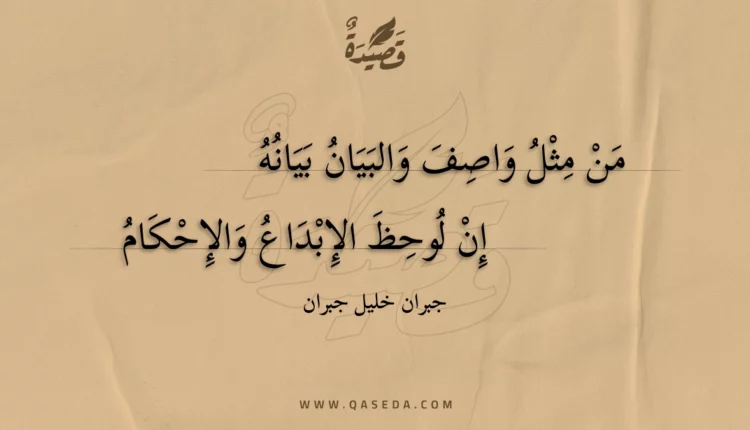 قَصِيدَةٌ
مَنْ مِثْلُ وَاصِفَ وَالبَيَانُ بَيَانُهُ
إِنْ لُوحِظَ الإِبْدَاعُ وَالإِحْكَامُ
جبران خليل جبران
WWW.QASEDA.COM